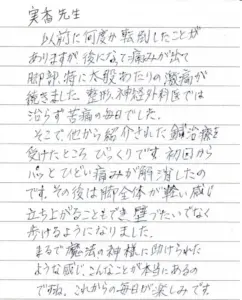 実香先生
以前に何度か転倒したことが
ありますが、後になって痛みが出て
脚部、特に太股あたりの激痛が
続きました。整形、神経外科医では
治らず苦痛の毎日でした。
そこで、他から紹介された鍼治療を
受けたところ びっくりです 初回から
パッとひどい痛みが解消したの
です。その後は脚全体が軽い感じ
立ち上がることもでき 壁づたいでなく
歩けるようになりました。
まるで魔法の神様に助けられた
ような感じ、こんなことが本当にあるの
ですね。これからの毎日が楽しみです